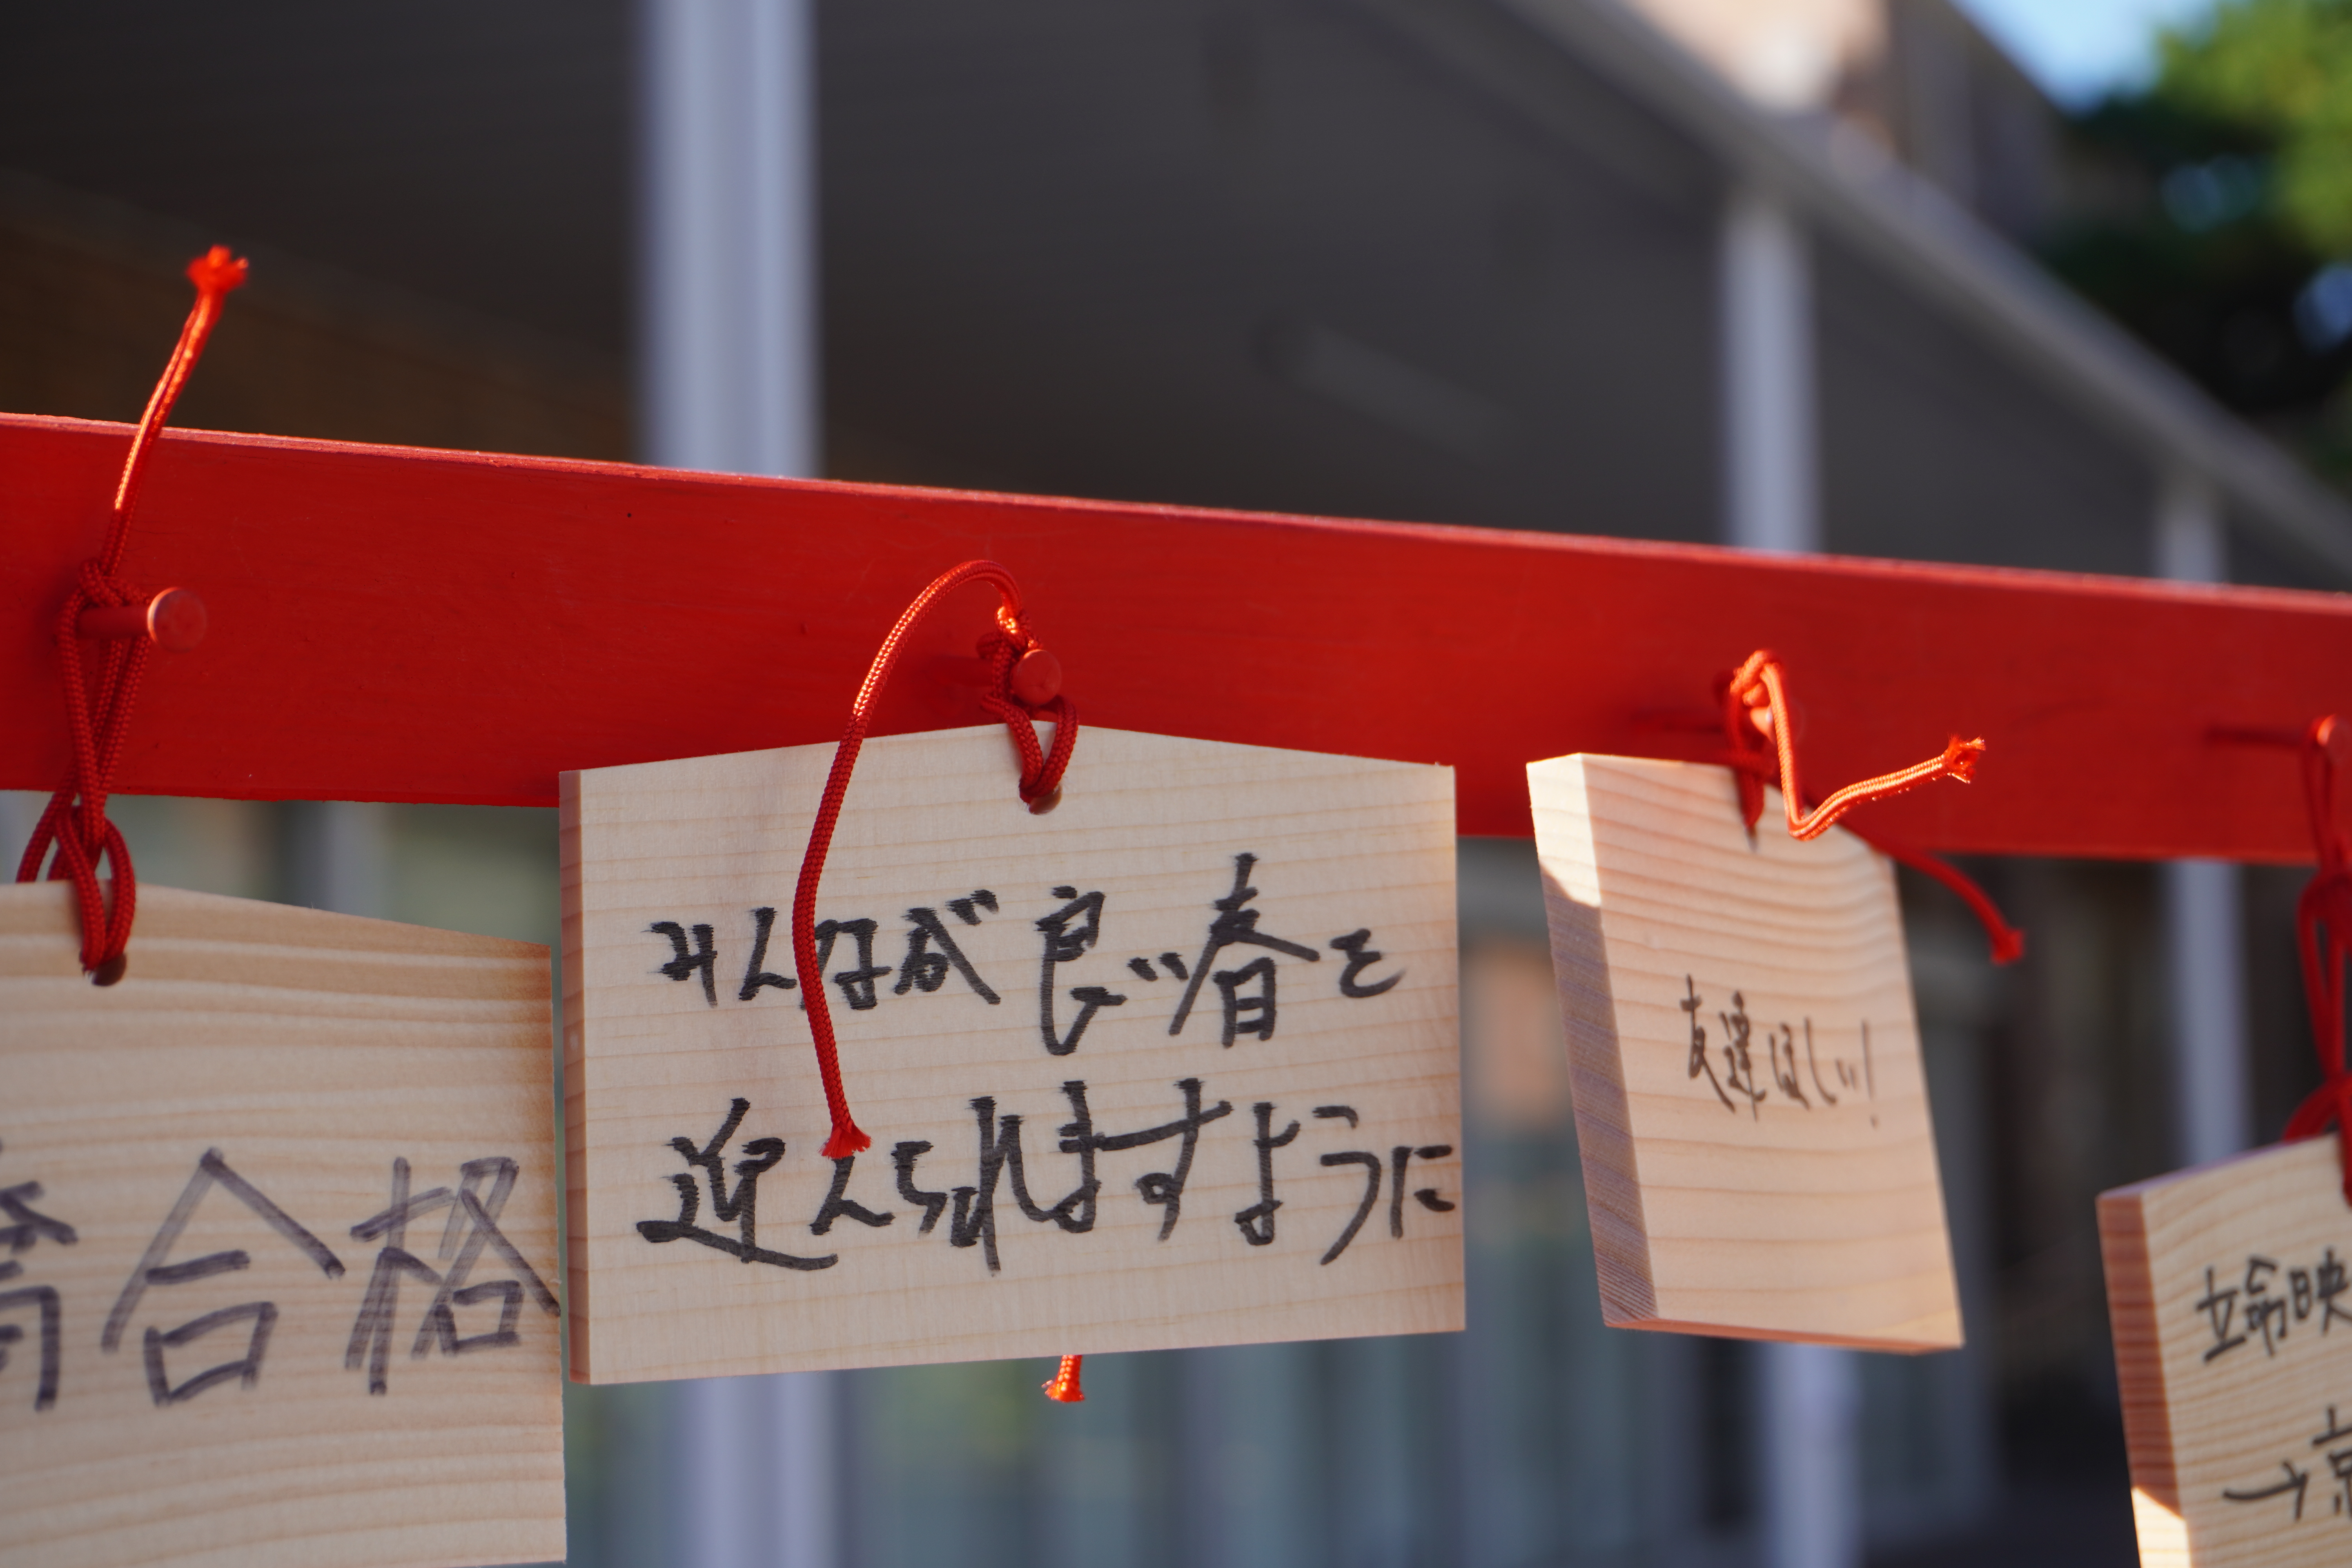 合格
みんなが良い春を
迎えられますように
友達ほしい!
立命映
→京